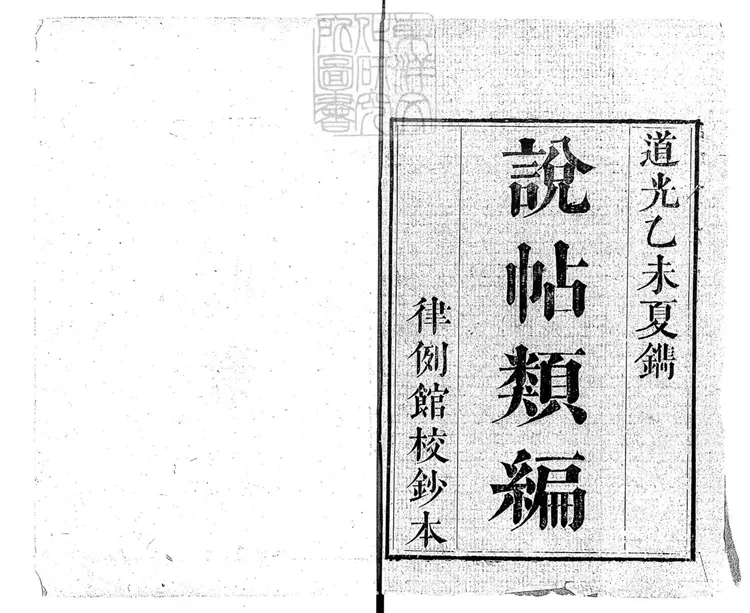 道光乙未夏鐫
說帖類編
律例館校鈔本
東洋文化研究所圖書